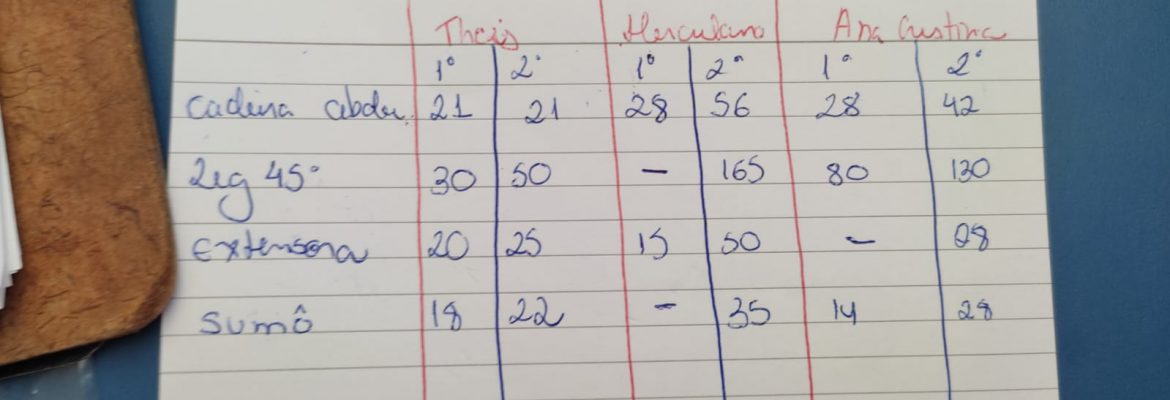 Theis Herculano Ana Cristina
1° 2° 1° 2° 1° 2°
Cadeira abdu. 21 21 28 56 28 42
Leg 45° 30 50 - 165 80 130
Extensora 20 25 15 50 - 28
Sumô 18 22 - 35 14 28